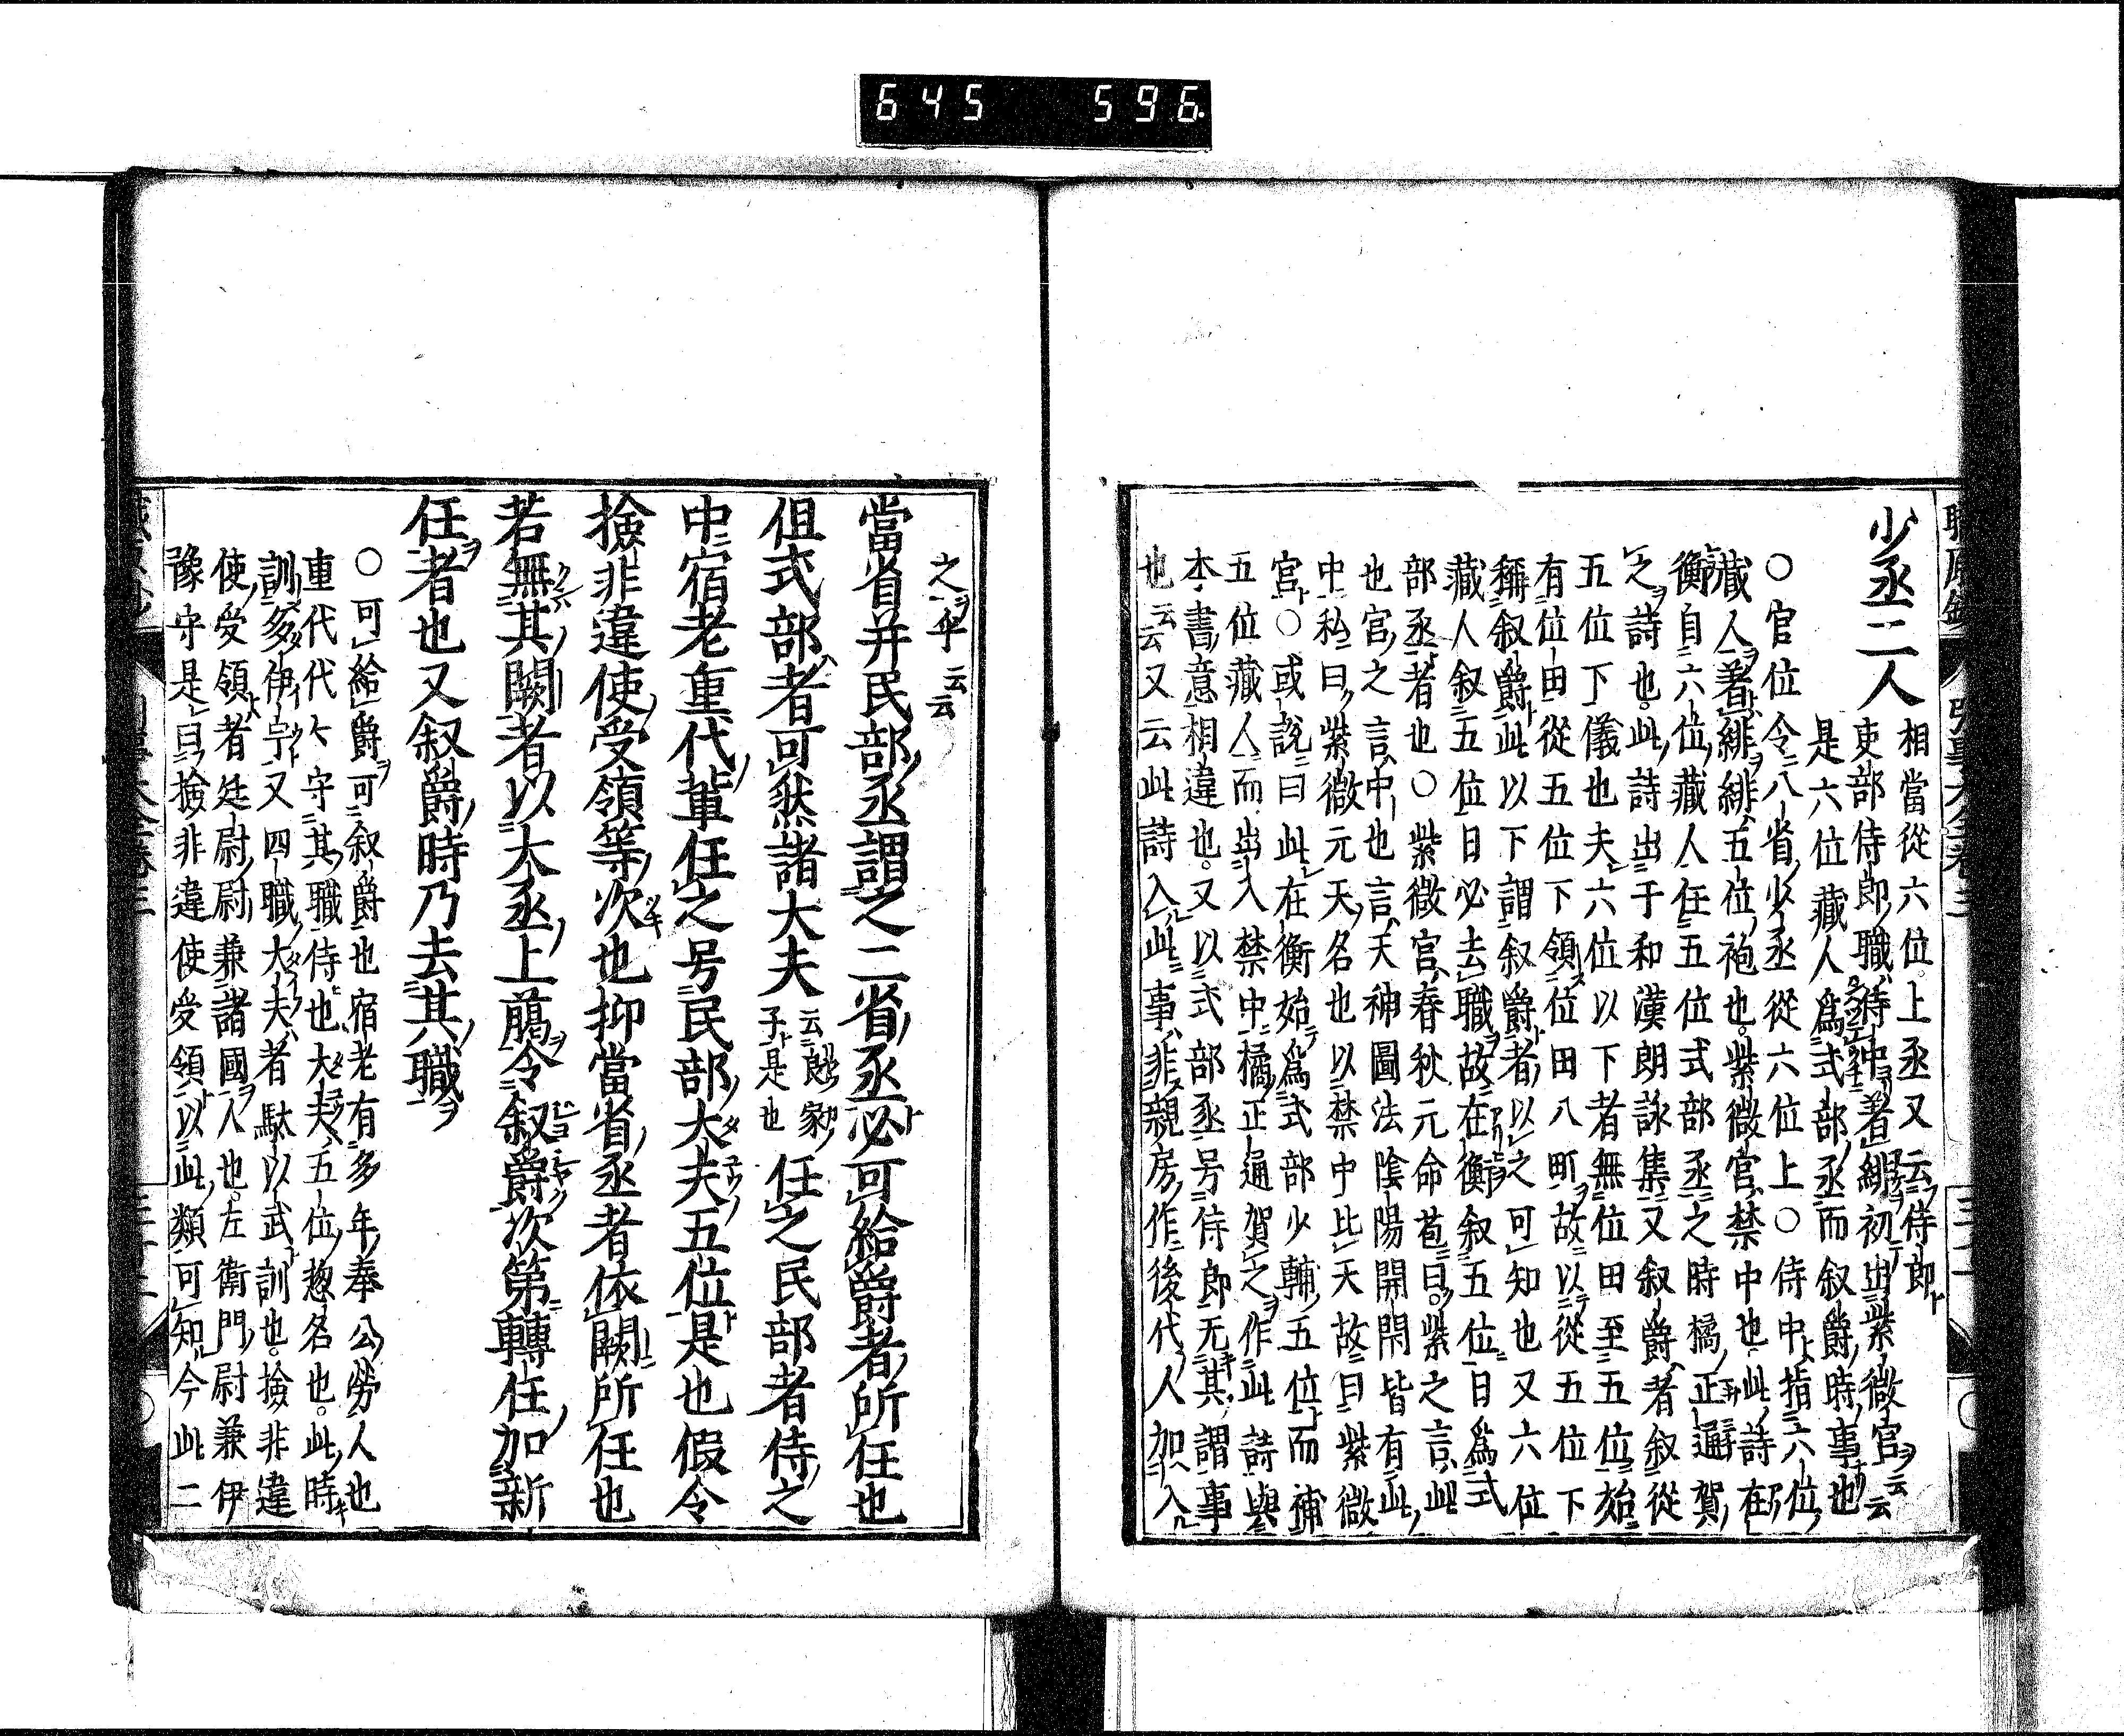 645 596
少丞二人
相當從六位上丞又云侍郎
吏部侍郎職侍中著緋初出紫微宮云云
是六位藏人爲式部丞而叙爵時事也
○官位令八省少丞從六位上○侍中指六位
藏人著緋緋五位袍也紫微宮禁中也此詩在
衡自六位藏人任五位式部丞之時橘正通賀
之詩也此詩出于和漢朗詠集又叙爵者叙從
五位下儀也夫六位以下者無位田至五位始
有位田從五位下領位田八町故以從五位下
稱叙爵此以下謂叙爵者以之可知也又六位
藏人叙五位日必去職故在衡叙五位日爲式
部丞者也○紫微宮春秋元命苞曰紫之言此
也宮之言中也言天神圖法陰陽開閇皆有此
中私曰紫微元天名也以禁中比天故曰紫微
宮○或說曰此在衡始爲式部少輔五位而補
五位藏人而出入禁中橘正通賀之作此詩與
本書意相違也又以式部丞号侍郎无其謂事
也云云又云此詩入此事非親房作後代人加入
之乎云云
當省并民部丞謂之二省丞必可給爵者所任也
但式部者可然諸大夫云良家子是也任之民部者侍之
中宿老重代輩任之号民部大夫五位是也假令
撿非違使受領等次也抑當省丞者依闕所任也
若無其闕者以大丞上﨟令叙爵次第轉任加新
任者也又叙爵時乃去其職
○可給爵可叙爵也宿老有多年奉公勞人也
重代代々守其職侍也大夫五位惣名也此時
訓多伊宇又四職大夫者駄以武訓也撿非違
使受領者廷尉尉兼諸國人也左衛門尉兼伊
豫守是曰撿非違使受領以此類可知今此二